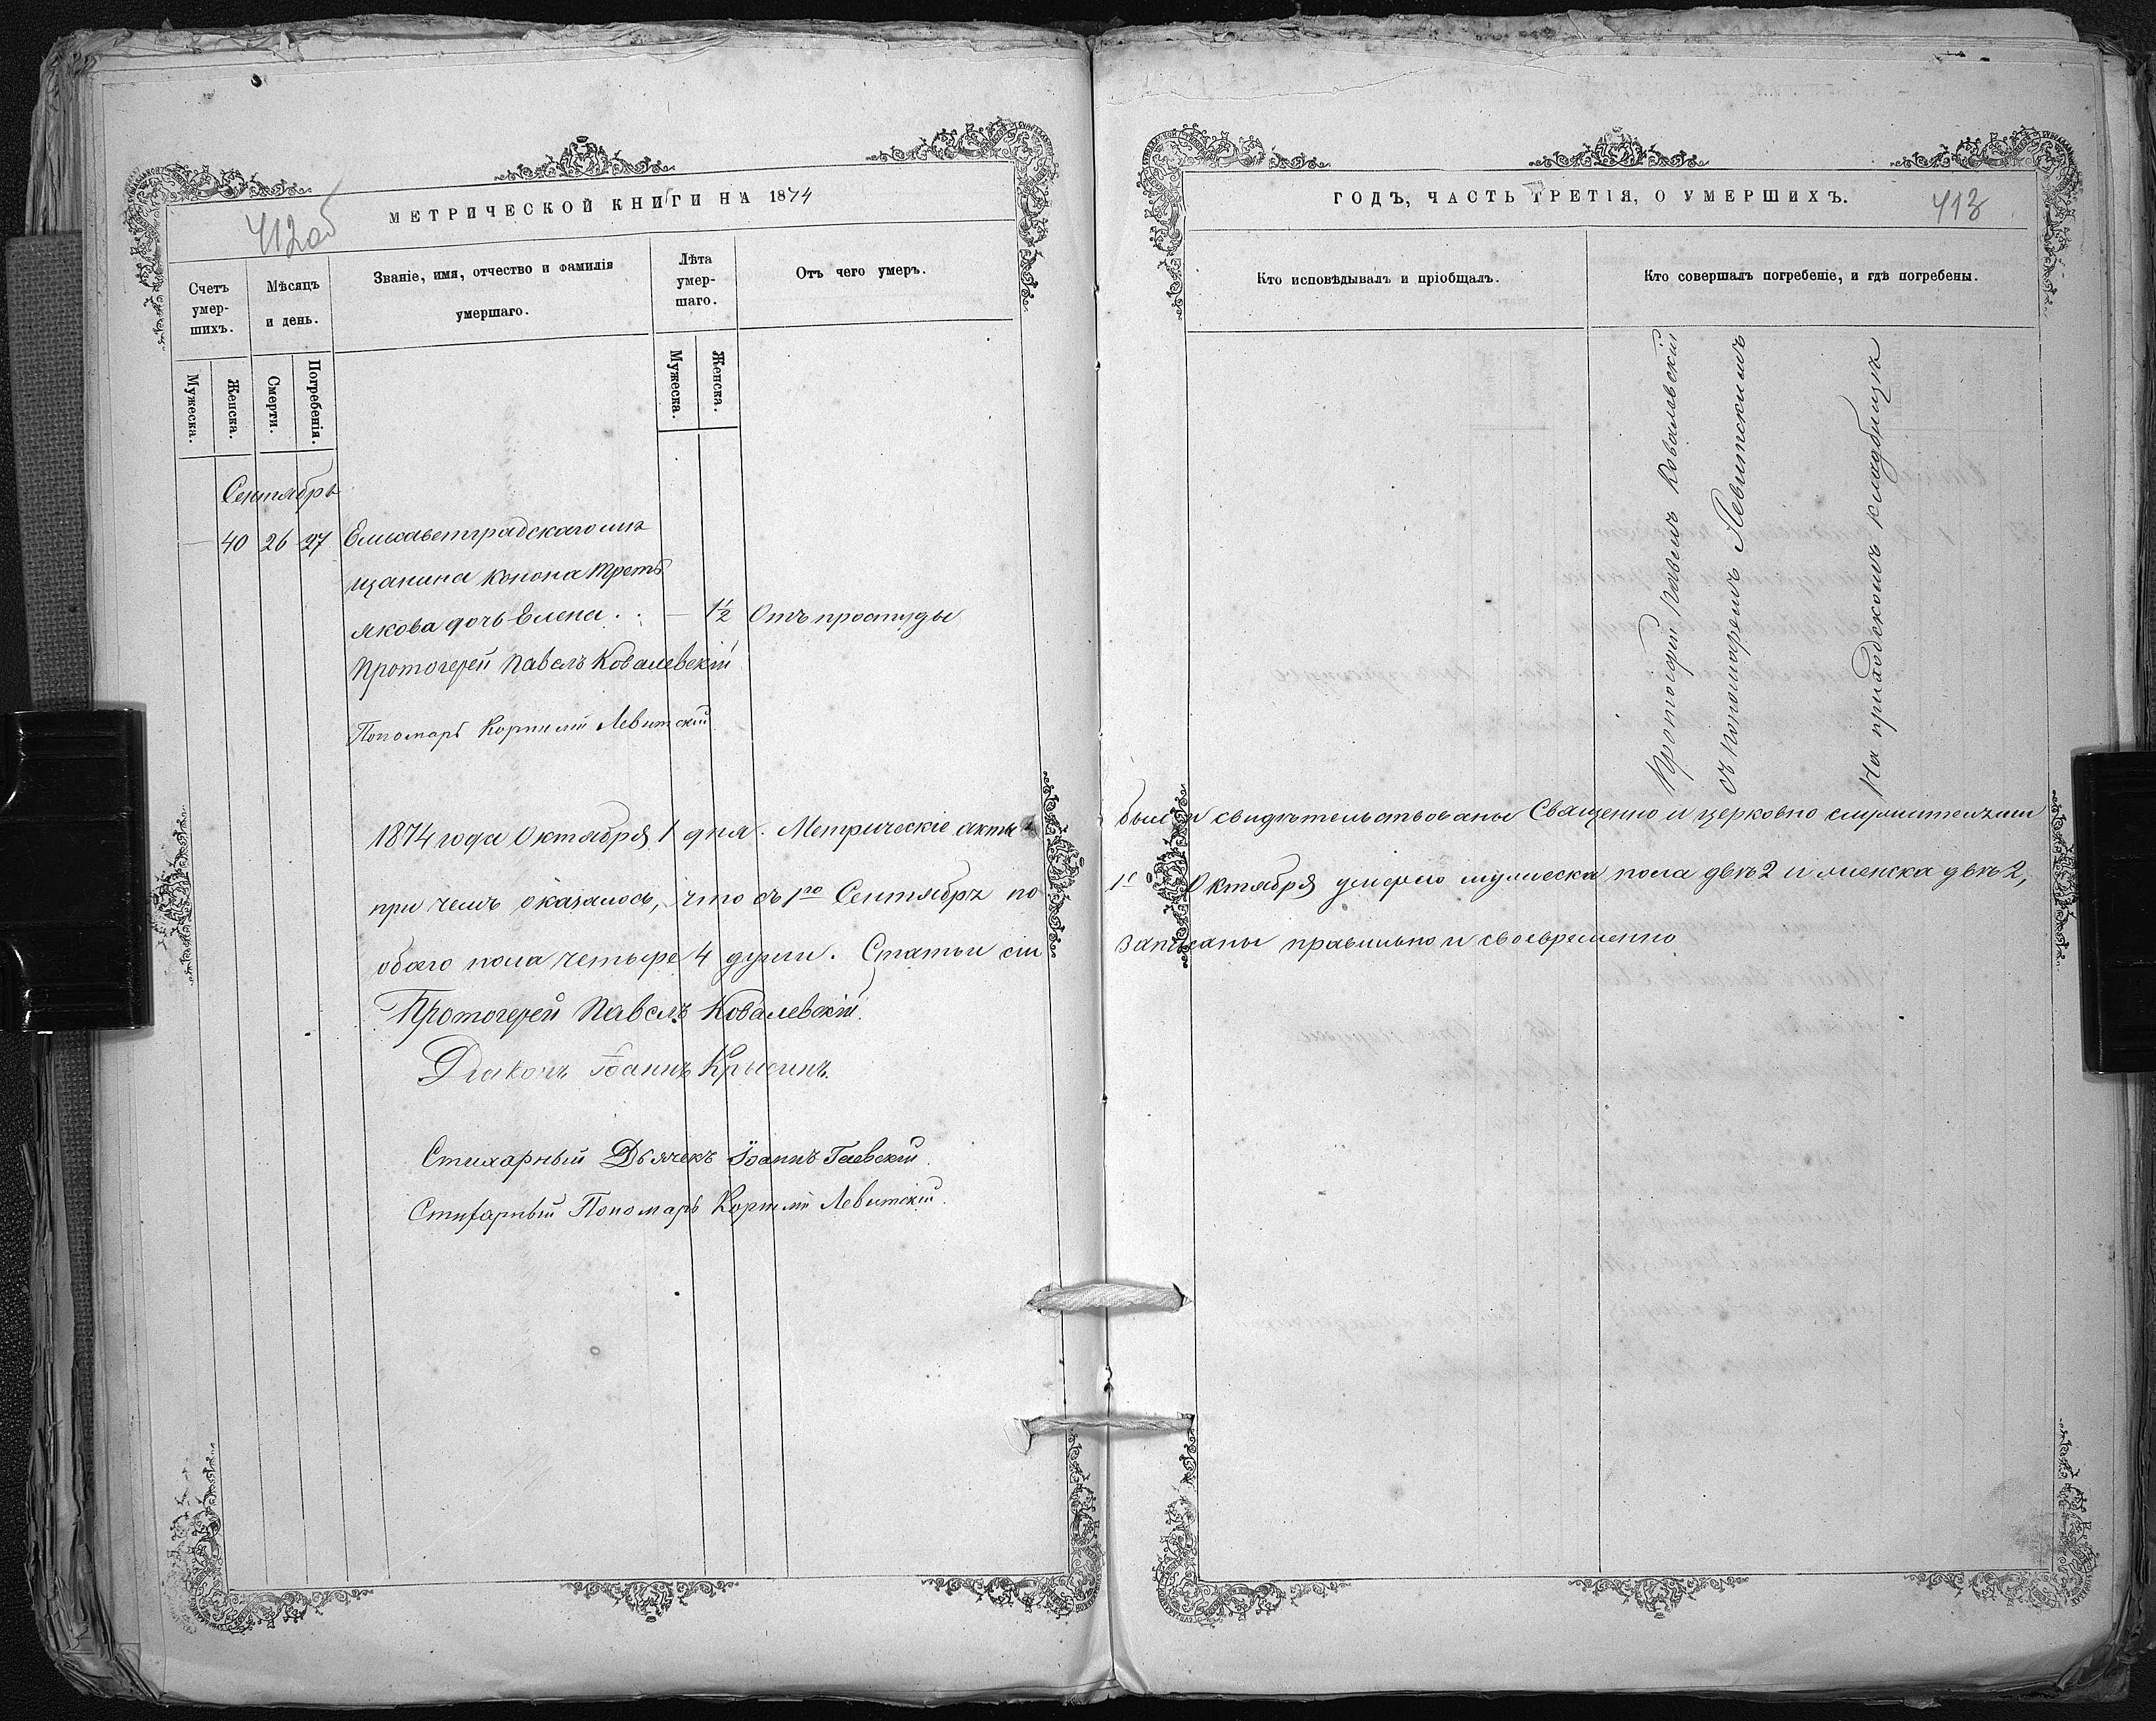 412об
МЕТРИЧЕСКОЙ КНИГИ НА 1874
Счетъ умер-шихъ.
Мѣсяцъ и день.
Званіе, имя, отчество и фамилія умершаго.
Лѣта умер-шаго.
Отъ чего умеръ.
Мужеска.
Женска.
Смерти.
Погребенія.
Мужеска.
Женска.
Сентябрь
— 40 26 27 Елисаветградскаго мѣ
щанина Конона Треть
якова дочь Елена. — 1½ Отъ простуды
Протоіерей Павелъ Ковалевскій
Пономарь Корнилій Левитскій
1874 года Октября 1 дня. Метрическіе акты
при чемъ оказалось, что съ 1го Сентября по
обаго пола четыре 4 души. Статьи сіи
Протоіерей Павелъ Ковалевскій.
Діаконъ Іоаннъ Крысинъ.
Стихарный Дьячекъ Іоаннъ Гаевскій.
Стихарный Пономарь Корнилій Левитскій.
ГОДЪ, ЧАСТЬ ТРЕТІЯ, О УМЕРШИХЪ.
413
Кто исповѣдывалъ и пріобщалъ.
Кто совершалъ погребеніе, и гдѣ погребены.
Протоіерей Павелъ Ковалевскій
съ Пономаремъ Левитскимъ
На приходскомъ кладбищѣ
были свидѣтельствованы Священно и церковно служителями
1е Октября умерло мужеска пола двѣ 2 и женска двѣ 2,
записаны правильно и своевременно